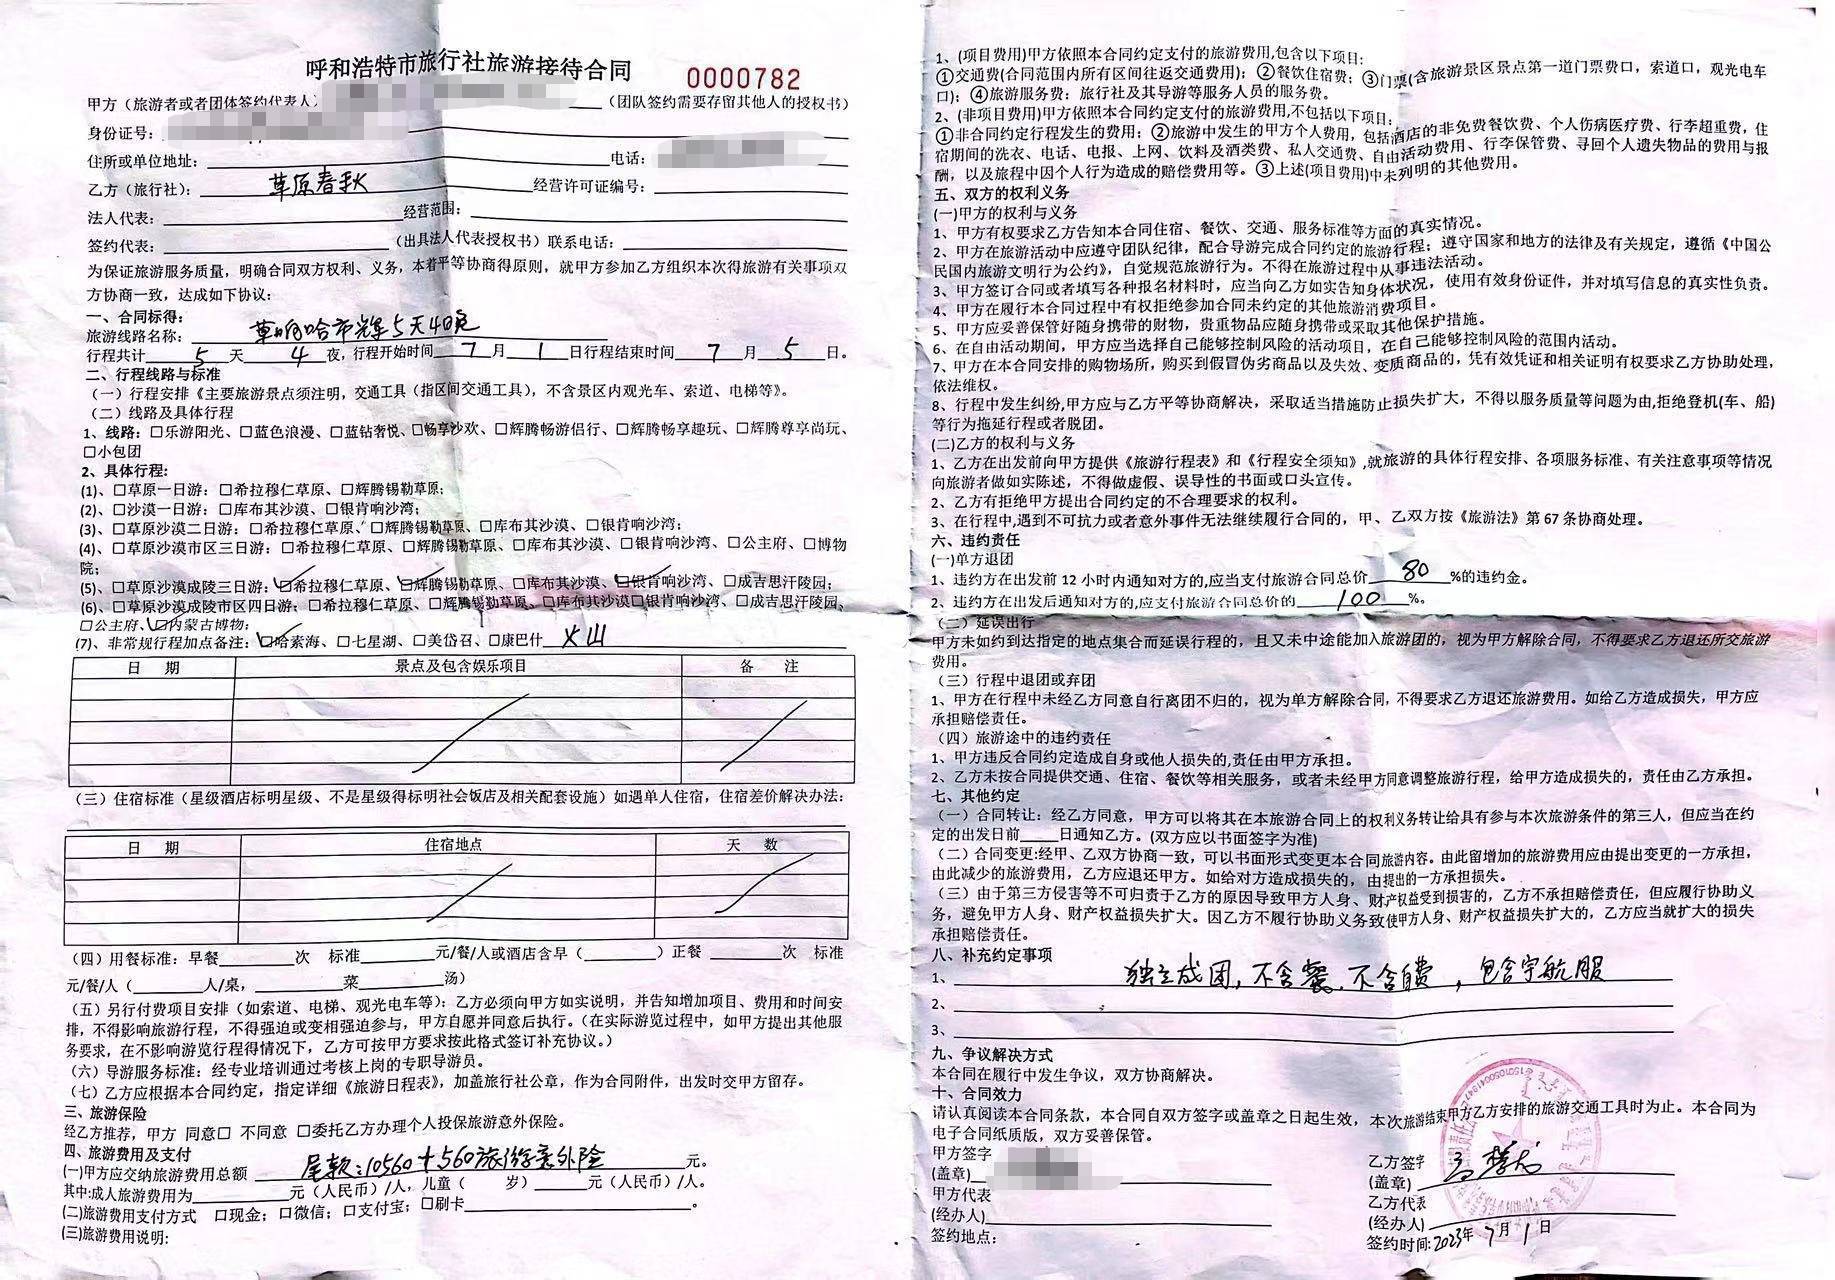 呼和浩特市旅行社旅游接待合同
0000782
甲方（旅游者或者团体签约代表人）（团队签约需要存留其他人的授权书）
身份证号：
住所或单位地址：电话：
乙方（旅行社）：草原春秋 经营许可证编号：
法人代表：经营范围：
签约代表：（出具法人代表授权书）联系电话：
为保证旅游服务质量，明确合同双方权利、义务，本着平等协商得原则，就甲方参加乙方组织本次得旅游有关事项双
方协商一致，达成如下协议：
一、合同标得：
旅游线路名称：5天4晚
行程共计 5 天 4 夜，行程开始时间 7 月 1 日行程结束时间 7 月 5 日。
二、行程线路与标准
（一）行程安排《主要旅游景点须注明，交通工具（指区间交通工具），不含景区内观光车、索道、电梯等》。
（二）线路及具体行程
1、线路：□乐游阳光、□蓝色浪漫、□蓝钻奢悦、□畅享沙欢、□辉腾畅游侣行、□辉腾畅享趣玩、□辉腾尊享尚玩、
□小包团
2、具体行程：
(1)、□草原一日游：□希拉穆仁草原、□辉腾锡勒草原；
(2)、□沙漠一日游：□库布其沙漠、□银肯响沙湾；
(3)、□草原沙漠二日游：□希拉穆仁草原、□辉腾锡勒草原、□库布其沙漠、□银肯响沙湾；
(4)、□草原沙漠市区三日游：□希拉穆仁草原、□辉腾锡勒草原、□库布其沙漠、□银肯响沙湾、□公主府、□博物
院；
(5)、□草原沙漠成陵三日游：☑希拉穆仁草原、☑辉腾锡勒草原、□库布其沙漠、☑银肯响沙湾、□成吉思汗陵园；
(6)、□草原沙漠成陵市区四日游：□希拉穆仁草原、□辉腾锡勒草原、□库布其沙漠□银肯响沙湾、□成吉思汗陵园、
□公主府、☑内蒙古博物；
(7)、非常规行程加点备注：☑哈素海、□七星湖、□美岱召、□康巴什 火山
日 期 景点及包含娱乐项目 备 注
（三）住宿标准（星级酒店标明星级、不是星级得标明社会饭店及相关配套设施）如遇单人住宿，住宿差价解决办法：
日 期 住宿地点 天 数
（四）用餐标准：早餐____次 标准____元/餐/人或酒店含早（____）正餐____次 标准
元/餐/人（____人/桌，____菜____汤）
（五）另行付费项目安排（如索道、电梯、观光电车等）：乙方必须向甲方如实说明，并告知增加项目、费用和时间安
排，不得影响旅游行程，不得强迫或变相强迫参与，甲方自愿并同意后执行。（在实际游览过程中，如甲方提出其他服
务要求，在不影响游览行程得情况下，乙方可按甲方要求按此格式签订补充协议。）
（六）导游服务标准：经专业培训通过考核上岗的专职导游员。
（七）乙方应根据本合同约定，指定详细《旅游日程表》，加盖旅行社公章，作为合同附件，出发时交甲方留存。
三、旅游保险
经乙方推荐，甲方 同意□ 不同意 □委托乙方办理个人投保旅游意外保险。
四、旅游费用及支付
(一)甲方应交纳旅游费用总额 尾款：10560＋560旅游意外险 元。
其中:成人旅游费用为____元（人民币）/人，儿童（ 岁）____元（人民币）/人。
(二)旅游费用支付方式 □现金；□微信；□支付宝；□刷卡____。
(三)旅游费用说明:
1、(项目费用)甲方依照本合同约定支付的旅游费用,包含以下项目:
①交通费(合同范围内所有区间往返交通费用)；②餐饮住宿费；③门票(含旅游景区景点第一道门票费口，索道口，观光电车
口)；④旅游服务费：旅行社及其导游等服务人员的服务费。
2、(非项目费用)甲方依照本合同约定支付的旅游费用,不包括以下项目:
①非合同约定行程发生的费用；②旅游中发生的甲方个人费用，包括酒店的非免费餐饮费、个人伤病医疗费、行李超重费，住
宿期间的洗衣、电话、电报、上网、饮料及酒类费、私人交通费、自由活动费用、行李保管费、寻回个人遗失物品的费用与报
酬，以及旅程中因个人行为造成的赔偿费用等。③上述(项目费用)中未列明的其他费用。
五、双方的权利义务
(一)甲方的权利与义务
1、甲方有权要求乙方告知本合同住宿、餐饮、交通、服务标准等方面的真实情况。
2、甲方在旅游活动中应遵守团队纪律，配合导游完成合同约定的旅游行程；遵守国家和地方的法律及有关规定，遵循《中国公
民国内旅游文明行为公约》，自觉规范旅游行为。不得在旅游过程中从事违法活动。
3、甲方签订合同或者填写各种报名材料时，应当向乙方如实告知身体状况，使用有效身份证件，并对填写信息的真实性负责。
4、甲方在履行本合同过程中有权拒绝参加合同未约定的其他旅游消费项目。
5、甲方应妥善保管好随身携带的财物，贵重物品应随身携带或采取其他保护措施。
6、在自由活动期间，甲方应当选择自己能够控制风险的活动项目，在自己能够控制风险的范围内活动。
7、甲方在本合同安排的购物场所，购买到假冒伪劣商品以及失效、变质商品的，凭有效凭证和相关证明有权要求乙方协助处理，
依法维权。
8、行程中发生纠纷,甲方应与乙方平等协商解决，采取适当措施防止损失扩大，不得以服务质量等问题为由,拒绝登机(车、船)
等行为拖延行程或者脱团。
(二)乙方的权利与义务
1、乙方在出发前向甲方提供《旅游行程表》和《行程安全须知》,就旅游的具体行程安排、各项服务标准、有关注意事项等情况
向旅游者做如实陈述，不得做虚假、误导性的书面或口头宣传。
2、乙方有拒绝甲方提出合同约定的不合理要求的权利。
3、在行程中,遇到不可抗力或者意外事件无法继续履行合同的，甲、乙双方按《旅游法》第 67 条协商处理。
六、违约责任
(一)单方退团
1、违约方在出发前 12 小时内通知对方的,应当支付旅游合同总价 80 %的违约金。
2、违约方在出发后通知对方的,应支付旅游合同总价的 100 %。
(二) 延误出行
甲方未如约到达指定的地点集合而延误行程的，且又未中途能加入旅游团的，视为甲方解除合同，不得要求乙方退还所交旅游
费用。
（三）行程中退团或弃团
1、甲方在行程中未经乙方同意自行离团不归的，视为单方解除合同,不得要求乙方退还旅游费用。如给乙方造成损失，甲方应
承担赔偿责任。
（四）旅游途中的违约责任
1、甲方违反合同约定造成自身或他人损失的,责任由甲方承担。
2、乙方未按合同提供交通、住宿、餐饮等相关服务，或者未经甲方同意调整旅游行程，给甲方造成损失的，责任由乙方承担。
七、其他约定
（一）合同转让：经乙方同意，甲方可以将其在本旅游合同上的权利义务转让给具有参与本次旅游条件的第三人，但应当在约
定的出发日前____日通知乙方。(双方应以书面签字为准)
（二）合同变更:经甲、乙双方协商一致，可以书面形式变更本合同旅游内容。由此留增加的旅游费用应由提出变更的一方承担，
由此减少的旅游费用，乙方应退还甲方。如给对方造成损失的，由提出的一方承担损失。
（三）由于第三方侵害等不可归责于乙方的原因导致甲方人身、财产权益受到损害的，乙方不承担赔偿责任，但应履行协助义
务，避免甲方人身、财产权益损失扩大。因乙方不履行协助义务致使甲方人身、财产权益损失扩大的，乙方应当就扩大的损失
承担赔偿责任。
八、补充约定事项
1、独立成团，不含餐、不含自费，包含宇航服
2、
3、
九、争议解决方式
本合同在履行中发生争议，双方协商解决。
十、合同效力
请认真阅读本合同条款，本合同自双方签字或盖章之日起生效，本次旅游结束甲方乙方安排的旅游交通工具时为止。本合同为
电子合同纸质版，双方妥善保管。
甲方签字 乙方签字
(盖章) (盖章)
甲方代表 乙方代表
(经办人) (经办人)
签约地点: 签约时间:2023年 7月 1日